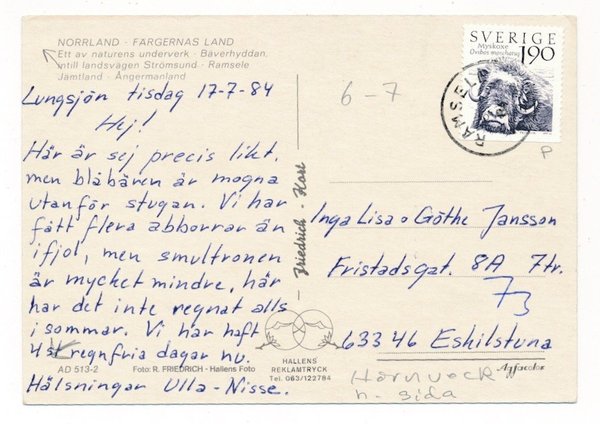 NORRLAND · FÄRGERNAS LAND
Ett av naturens underverk · Bäverhyddan,
intill landsvägen Strömsund - Ramsele
Jämtland · Ångermanland
Lungsjön tisdag 17-7-84
Hej!
Här är sej precis likt,
men blåbären är mogna
utanför stugan. Vi har
fått flera abborrar än
ifjol, men smultronen
är mycket mindre, här
har det inte regnat alls
i sommar. Vi har haft
4 st regnfria dagar nu.
Hälsningar Ulla-Nisse.
AD 513-2 Foto: R. FRIEDRICH - Hallens Foto
Friedrich - Kort
HALLENS
REKLAMTRYCK
Tel. 063/122784
SVERIGE
Myskoxe
Ovibos moschatus
1.90
RAMSELE
6-7
P
Inga Lisa o Göthe Jansson
Fristadsgat. 8A 7tr.
73
633 46 Eskilstuna
Agfacolor
h- sida